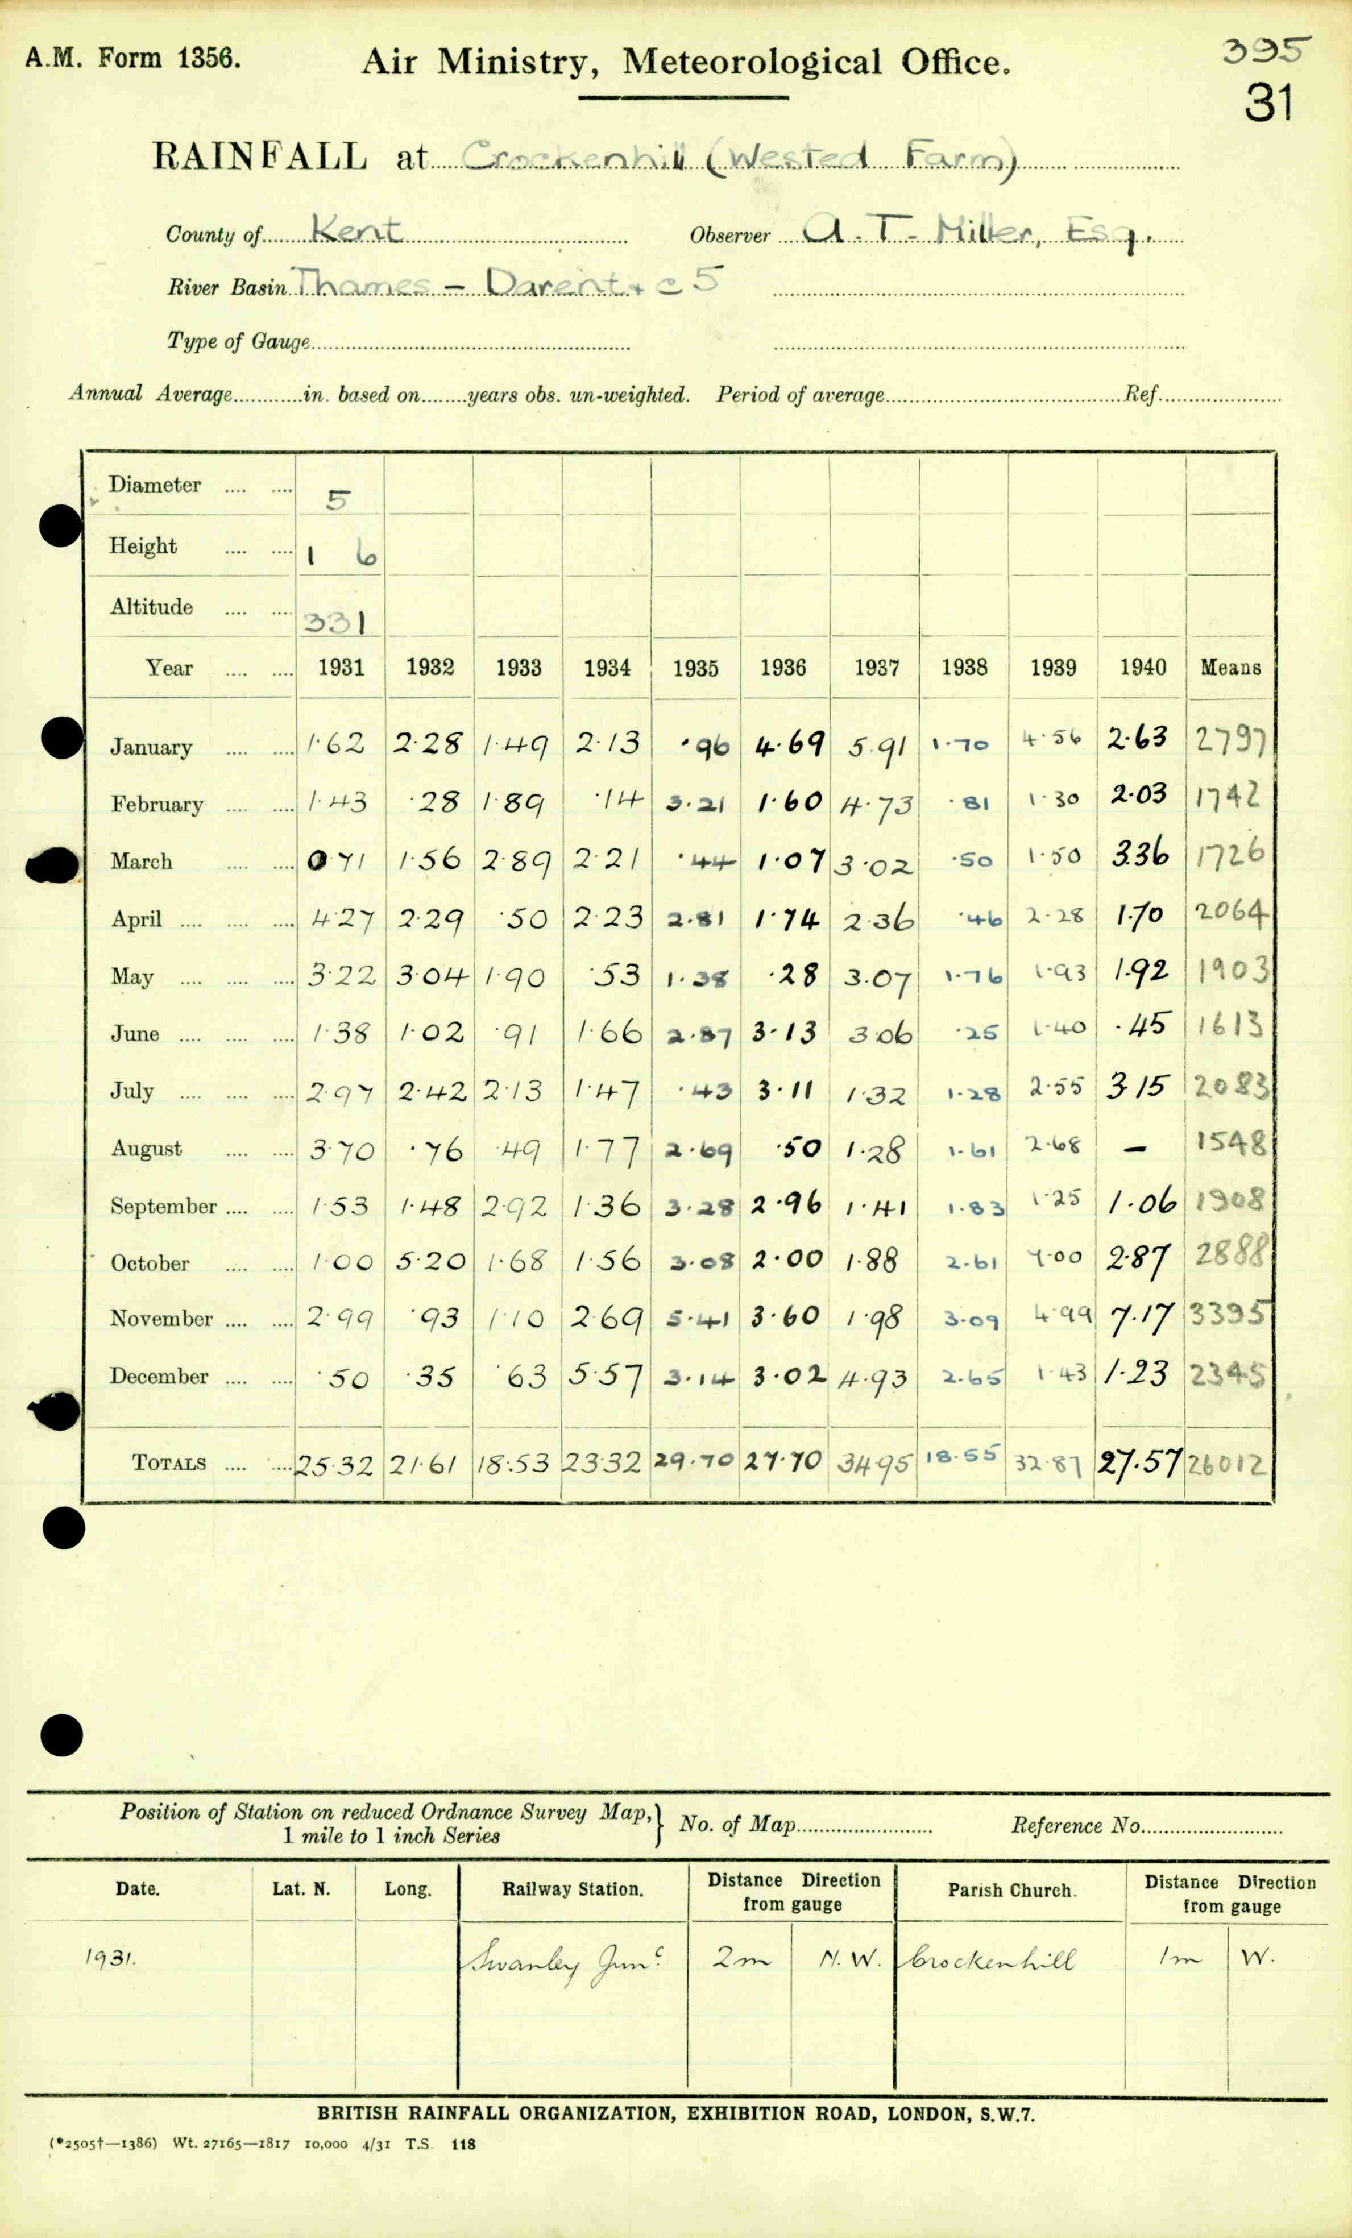 A.M. Form 1356.
Air Ministry, Meteorological Office.
395
31
RAINFALL at Crockenhill (Wested Farm)
County of Kent Observer A. T. Miller, Esq.
River Basin Thames - Darent + c 5
Type of Gauge
Annual Average in. based on years obs. un-weighted. Period of average Ref.
Diameter 5
Height 1 6
Altitude 331
Year 1931 1932 1933 1934 1935 1936 1937 1938 1939 1940 Means
January 1·62 2·28 1·49 2·13 ·96 4·69 5·91 1·70 4·56 2·63 2797
February 1·43 ·28 1·89 ·14 3·21 1·60 4·73 ·81 1·30 2·03 1742
March 0·71 1·56 2·89 2·21 ·44 1·07 3·02 ·50 1·50 3·36 1726
April 4·27 2·29 ·50 2·23 2·81 1·74 2·36 ·46 2·28 1·70 2064
May 3·22 3·04 1·90 ·53 1·38 ·28 3·07 1·76 1·93 1·92 1903
June 1·38 1·02 ·91 1·66 2·87 3·13 3·06 ·25 1·40 ·45 1613
July 2·97 2·42 2·13 1·47 ·43 3·11 1·32 1·28 2·55 3·15 2083
August 3·70 ·76 ·49 1·77 2·69 ·50 1·28 1·61 2·68 — 1548
September 1·53 1·48 2·92 1·36 3·28 2·96 1·41 1·83 1·25 1·06 1908
October 1·00 5·20 1·68 1·56 3·08 2·00 1·88 2·61 7·00 2·87 2888
November 2·99 ·93 1·10 2·69 5·41 3·60 1·98 3·09 4·99 7·17 3395
December ·50 ·35 ·63 5·57 3·14 3·02 4·93 2·65 1·43 1·23 2345
TOTALS 25·32 21·61 18·53 23·32 29·70 27·70 34·95 18·55 32·87 27·57 26012
Position of Station on reduced Ordnance Survey Map,
1 mile to 1 inch Series
No. of Map Reference No.
Date. Lat. N. Long. Railway Station. Distance Direction from gauge Parish Church. Distance Direction from gauge
1931. Swanley Junc. 2m N.W. Crockenhill 1m W.
BRITISH RAINFALL ORGANIZATION, EXHIBITION ROAD, LONDON, S.W.7.
(*2505†—1386) Wt. 27165—1817 10,000 4/31 T.S. 118